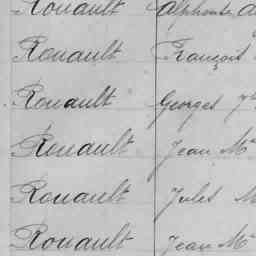 Rouault Alphonse
Rouault François
Rouault Georges
Rouault Jean M
Rouault Jules M
Rouault Jean M